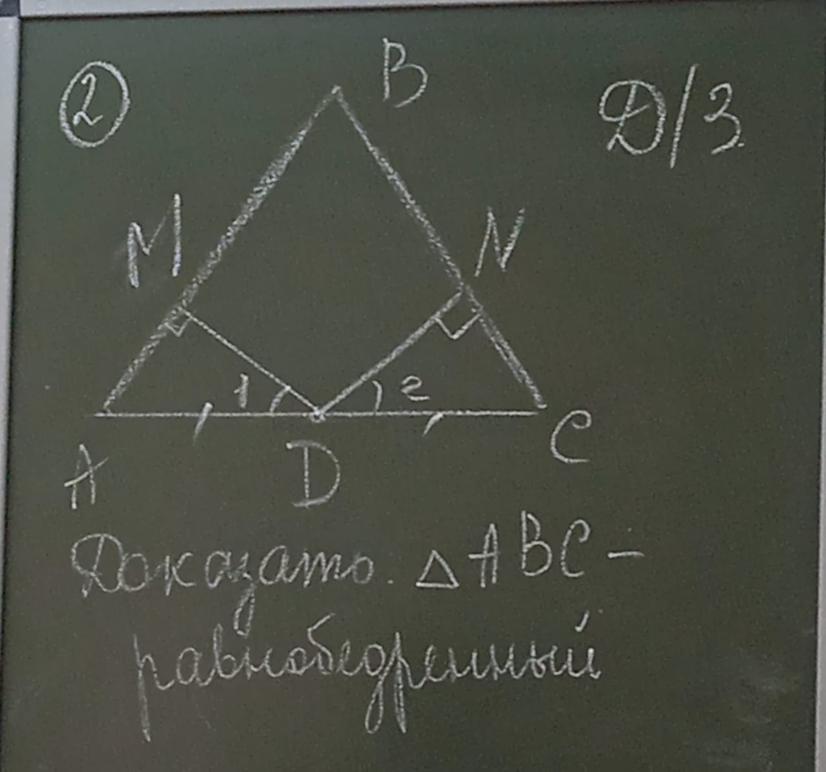 ② B Д/З
M N
1 2
A D C
Доказать. △ABC –
равнобедренный